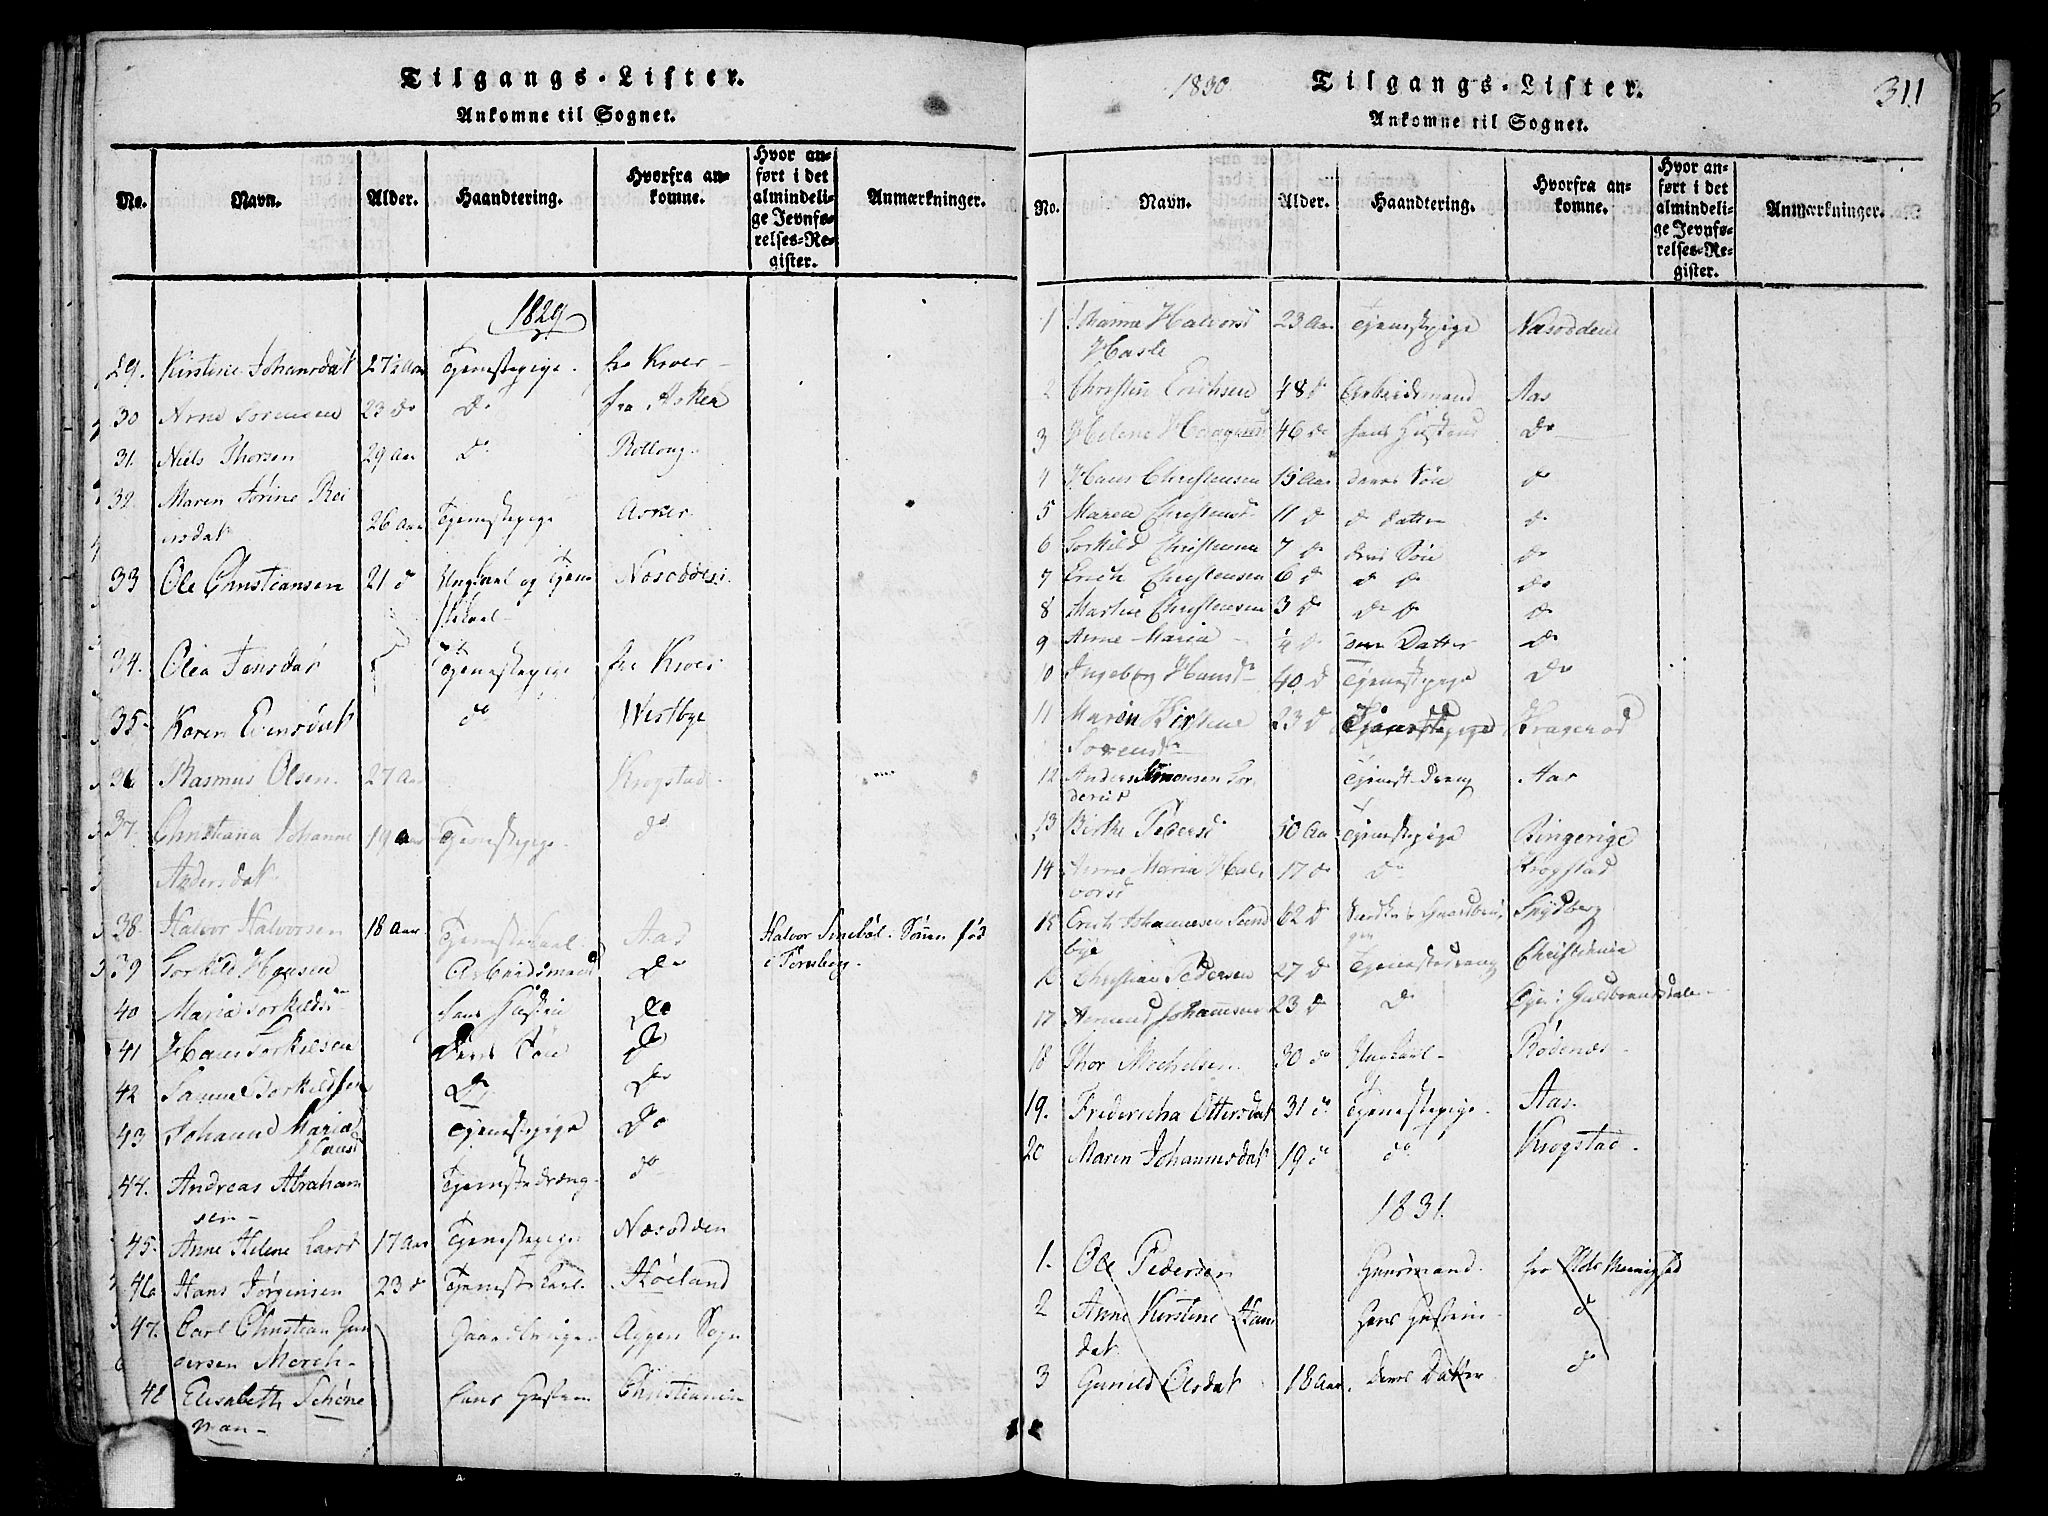 Tilgangs-Lister.
Ankomne til Sognet.
No. Navn. Alder. Haandtering. Hvorfra ankomne. Hvor anført i det almindelige Jevnførelses-Register. Anmærkninger.
1829
29. Kirstine Johansdat 27½ Aar Tjenestepige. fra Kroer
30 Arne Sorensen 23 do do fra Asker
31. Niels Thorsen 29 Aar do
32. Maren Jørine Rei
ersdat 26 Aar Tjenestepige Asker
33 Ole Christiansen 21 d Ungkarl og Tjene Nesodden
stekarl
34. Olea Jensdat Tjenestepige fra Kroer
35 Karen Evensdat do Westbye
36 Rasmus Olsen 27 Aar Krogstad
37. Christiana Johanne 19 Aar Tjenestepige do
Andersdat
38. Halvor Halvorsen 18 Aar Tjenestekarl Aas Halvor Sønnen fød
i Tønsberg
39 Torkild Hansen Arbeidsmand Do
40 Maria Torkilds Hans Hustru Do
41 Hans Torkilsen Deres Søn Do
42 Samuel Torkildsen Do Do
43 Johanne Maria Tjenestepige Do
Hansd
44. Andreas Abraham Tjenestedreng do
sen
45. Anne Helene Larsd 17 Aar Tjenestepige Næsodden
46 Hans Jørgensen 23 d Tjenestekarl
47. Carl Christian Gun Gaardbruger Aggers Sogn
dersen Morch
48 Elisabeth Schøne hans Hustrue Christiania
man
1830. Tilgangs-Lister. 311
Ankomne til Sognet.
No. Navn. Alder. Haandtering. Hvorfra ankomne. Hvor anført i det almindelige Jevnførelses-Register. Anmærkninger.
1 Johanne Halvorsd 23 Aar Tjenestepige Næsodden
Hasle
2 Christen Erichsen 48 d Arbeidsmand Aas
3 Helene 46 do hans Hustrue Do
4 Hans Christensen 15 Aar deres Søn d
5 Maren Christensd 11 d d Datter do
6 Torkild Christensen 7 do deres Søn do
7 Erich Christensen 6 d d d do
8 Martin Christensen 3 d do d d
9 Anne Maria ¼ d deres Datter do
10 Ingeborg Hansd 40 d Tjenestepige Do
11 Maren Kirstine 23 d Tjenestepige Kragerød
Sorensd
12 Anders Simonsen Sor Tjenestedreng Aas
derud
13 Birthe Pedersd 50 Aar Tjenestepige Ringerige
14 Anne Maria Hal 17 do do Krogstad
vorsd
15 Erich Johannesen Sund 62 d Spydberg
bye
16 Christian Pedersen 27 d Tjenestedreng Christiania
17 Johannesen 23 d Do Øyer i Guldbrandsdalen
18 Thor Mechelsen 30 do Ungkarl Rødenæs
19. Fredericha Ottersdat 31 d. Tjenestepige Aas.
20 Maren Johannesdat 19 d do Krogstad.
1831.
1. Ole Pedersen Huusmand fra Menighed
2 Anne Kirstine Han Hans Hustrue d
dat
3 Gunild Olsdat 18 Aar. deres Datter d